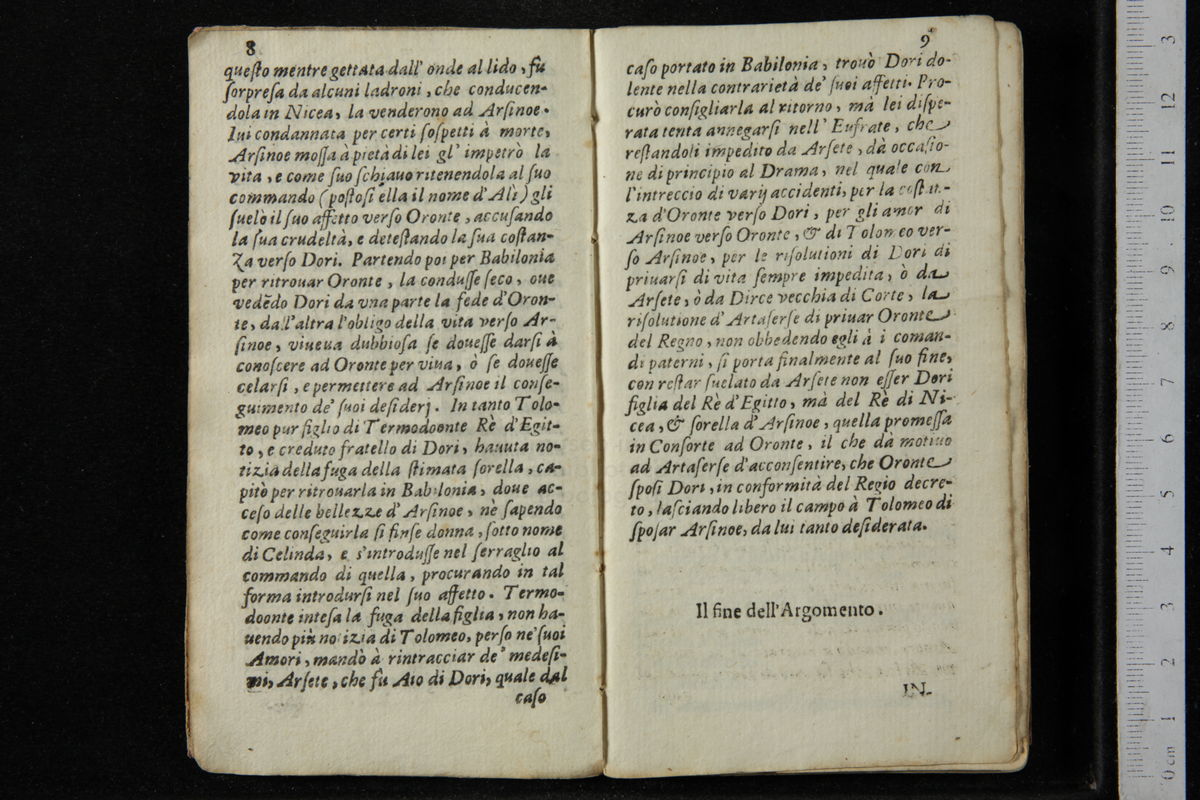 8
questo mentre gettata dall' onde al lido, fù
sorpresa da alcuni ladroni, che conducen-
dola in Nicea, la venderono ad Arsinoe.
Iui condannata per certi sospetti à morte,
Arsinoe mossa à pietà di lei gl' impetrò la
vita, e come suo schiauo ritenendola al suo
commando (postosi ella il nome d'Alì) gli
suelò il suo affetto verso Oronte, accusando
la sua crudeltà, e detestando la sua costan-
za verso Dori. Partendo poi per Babilonia
per ritrouar Oronte, la condusse seco, oue
vedẽdo Dori da vna parte la fede d'Oron-
te, dall'altra l'obligo della vita verso Ar-
sinoe, viueua dubbiosa se douesse darsi à
conoscere ad Oronte per viua, ò se douesse
celarsi, e permettere ad Arsinoe il conse-
guimento de' suoi desiderj. In tanto Tolo-
meo pur figlio di Termodoonte Rè d'Egit-
to, e creduto fratello di Dori, hauuta no-
tizia della fuga della stimata sorella, ca-
pitò per ritrouarla in Babilonia, doue ac-
ceso delle bellezze d'Arsinoe, nè sapendo
come conseguirla si finse donna, sotto nome
di Celinda, e s'introdusse nel serraglio al
commando di quella, procurando in tal
forma introdursi nel suo affetto. Termo-
doonte intesa la fuga della figlia, non ha-
uendo più notizia di Tolomeo, perso ne' suoi
Amori, mandò à rintracciar de' medesi-
mi, Arsete, che fù Aio di Dori, quale dal
caso
9
caso portato in Babilonia, trouò Dori do-
lente nella contrarietà de' suoi affetti. Pro-
curò consigliarla al ritorno, mà lei dispe-
rata tenta annegarsi nell' Eufrate, che
restandoli impedito da Arsete, dà occasio-
ne di principio al Drama, nel quale con
l'intreccio di varij accidenti, per la costan-
za d'Oronte verso Dori, per gli amor di
Arsinoe verso Oronte, & di Tolomeo ver-
so Arsinoe, per le risolutioni di Dori di
priuarsi di vita sempre impedita, ò da
Arsete, ò da Dirce vecchia di Corte, la
risolutione d'Artaserse di priuar Oronte
del Regno, non obbedendo egli à i coman-
di paterni, si porta finalmente al suo fine,
con restar suelato da Arsete non esser Dori
figlia del Rè d'Egitto, mà del Rè di Ni-
cea, & sorella d'Arsinoe, quella promessa
in Consorte ad Oronte, il che dà motiuo
ad Artaserse d'acconsentire, che Oronte
sposi Dori, in conformità del Regio decre-
to, lasciando libero il campo à Tolomeo di
sposar Arsinoe, da lui tanto desiderata.
Il fine dell'Argomento.
IN-
0 cm 1 2 3 4 5 6 7 8 9 10 11 12 3